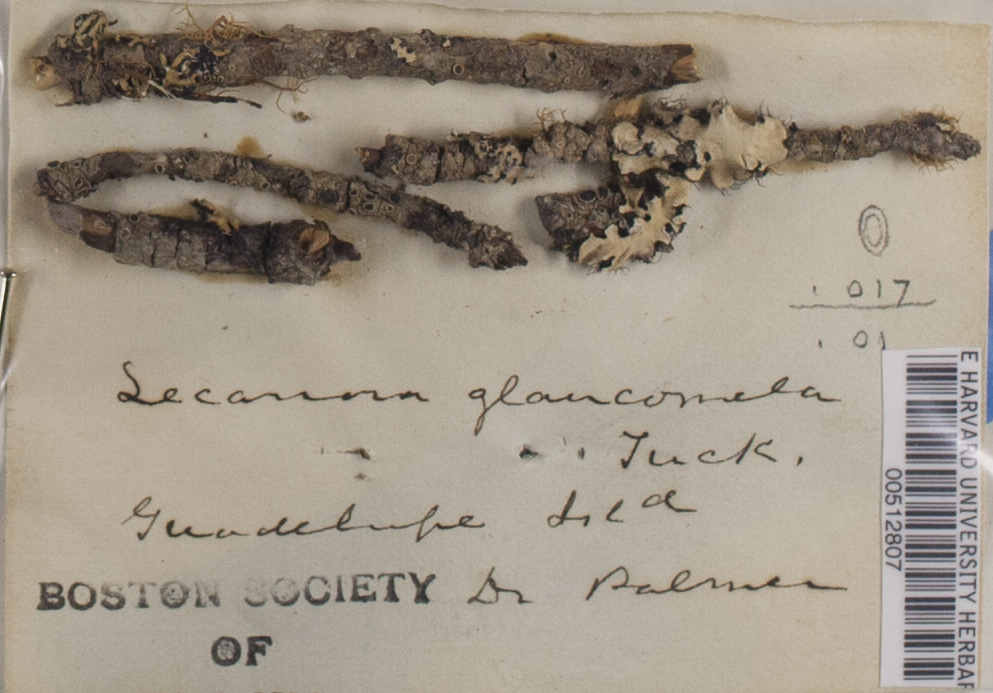 . 017
. 01
Lecanora glaucomela
Tuck.
Guadelupe Isld
BOSTON SOCIETY Dr Palmer
OF
E HARVARD UNIVERSITY HERBAR
00512807